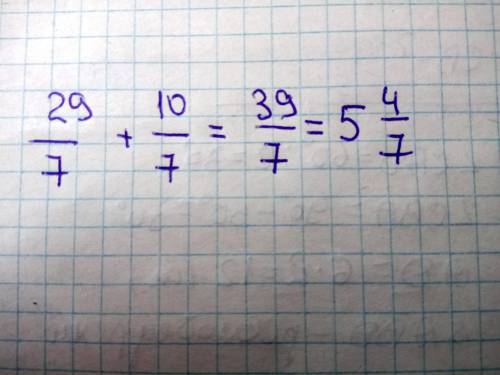 29/7 + 10/7 = 39/7 = 5 4/7